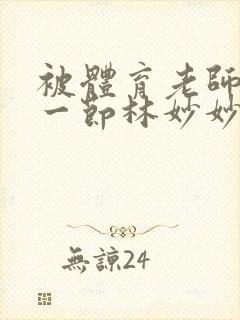 被體育老師
一節林妙妙
無諒24